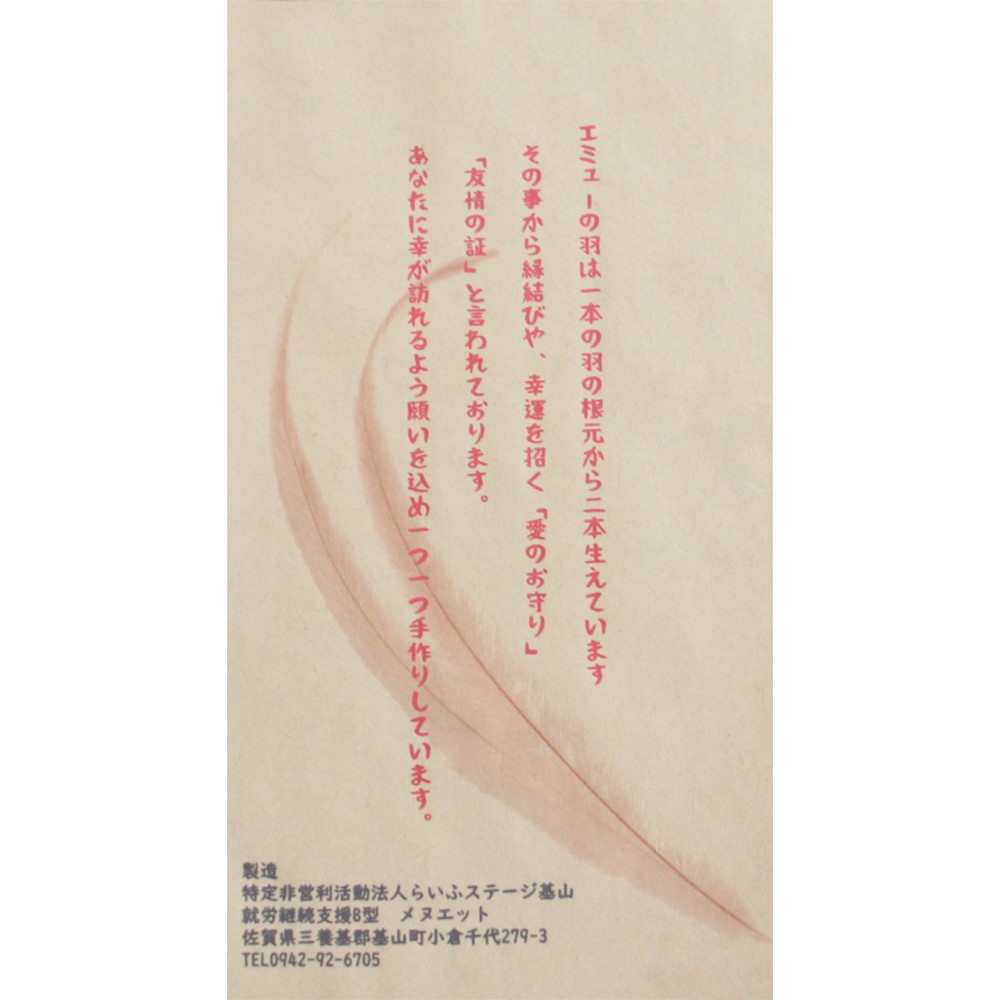 エミューの羽は一本の羽の根元から二本生えています
その事から縁結びや、幸運を招く「愛のお守り」
「友情の証」と言われております。
あなたに幸が訪れるよう願いを込め一つ一つ手作りしています。
製造
特定非営利活動法人らいふステージ基山
就労継続支援B型　メヌエット
佐賀県三養基郡基山町小倉千代279-3
TEL0942-92-6705